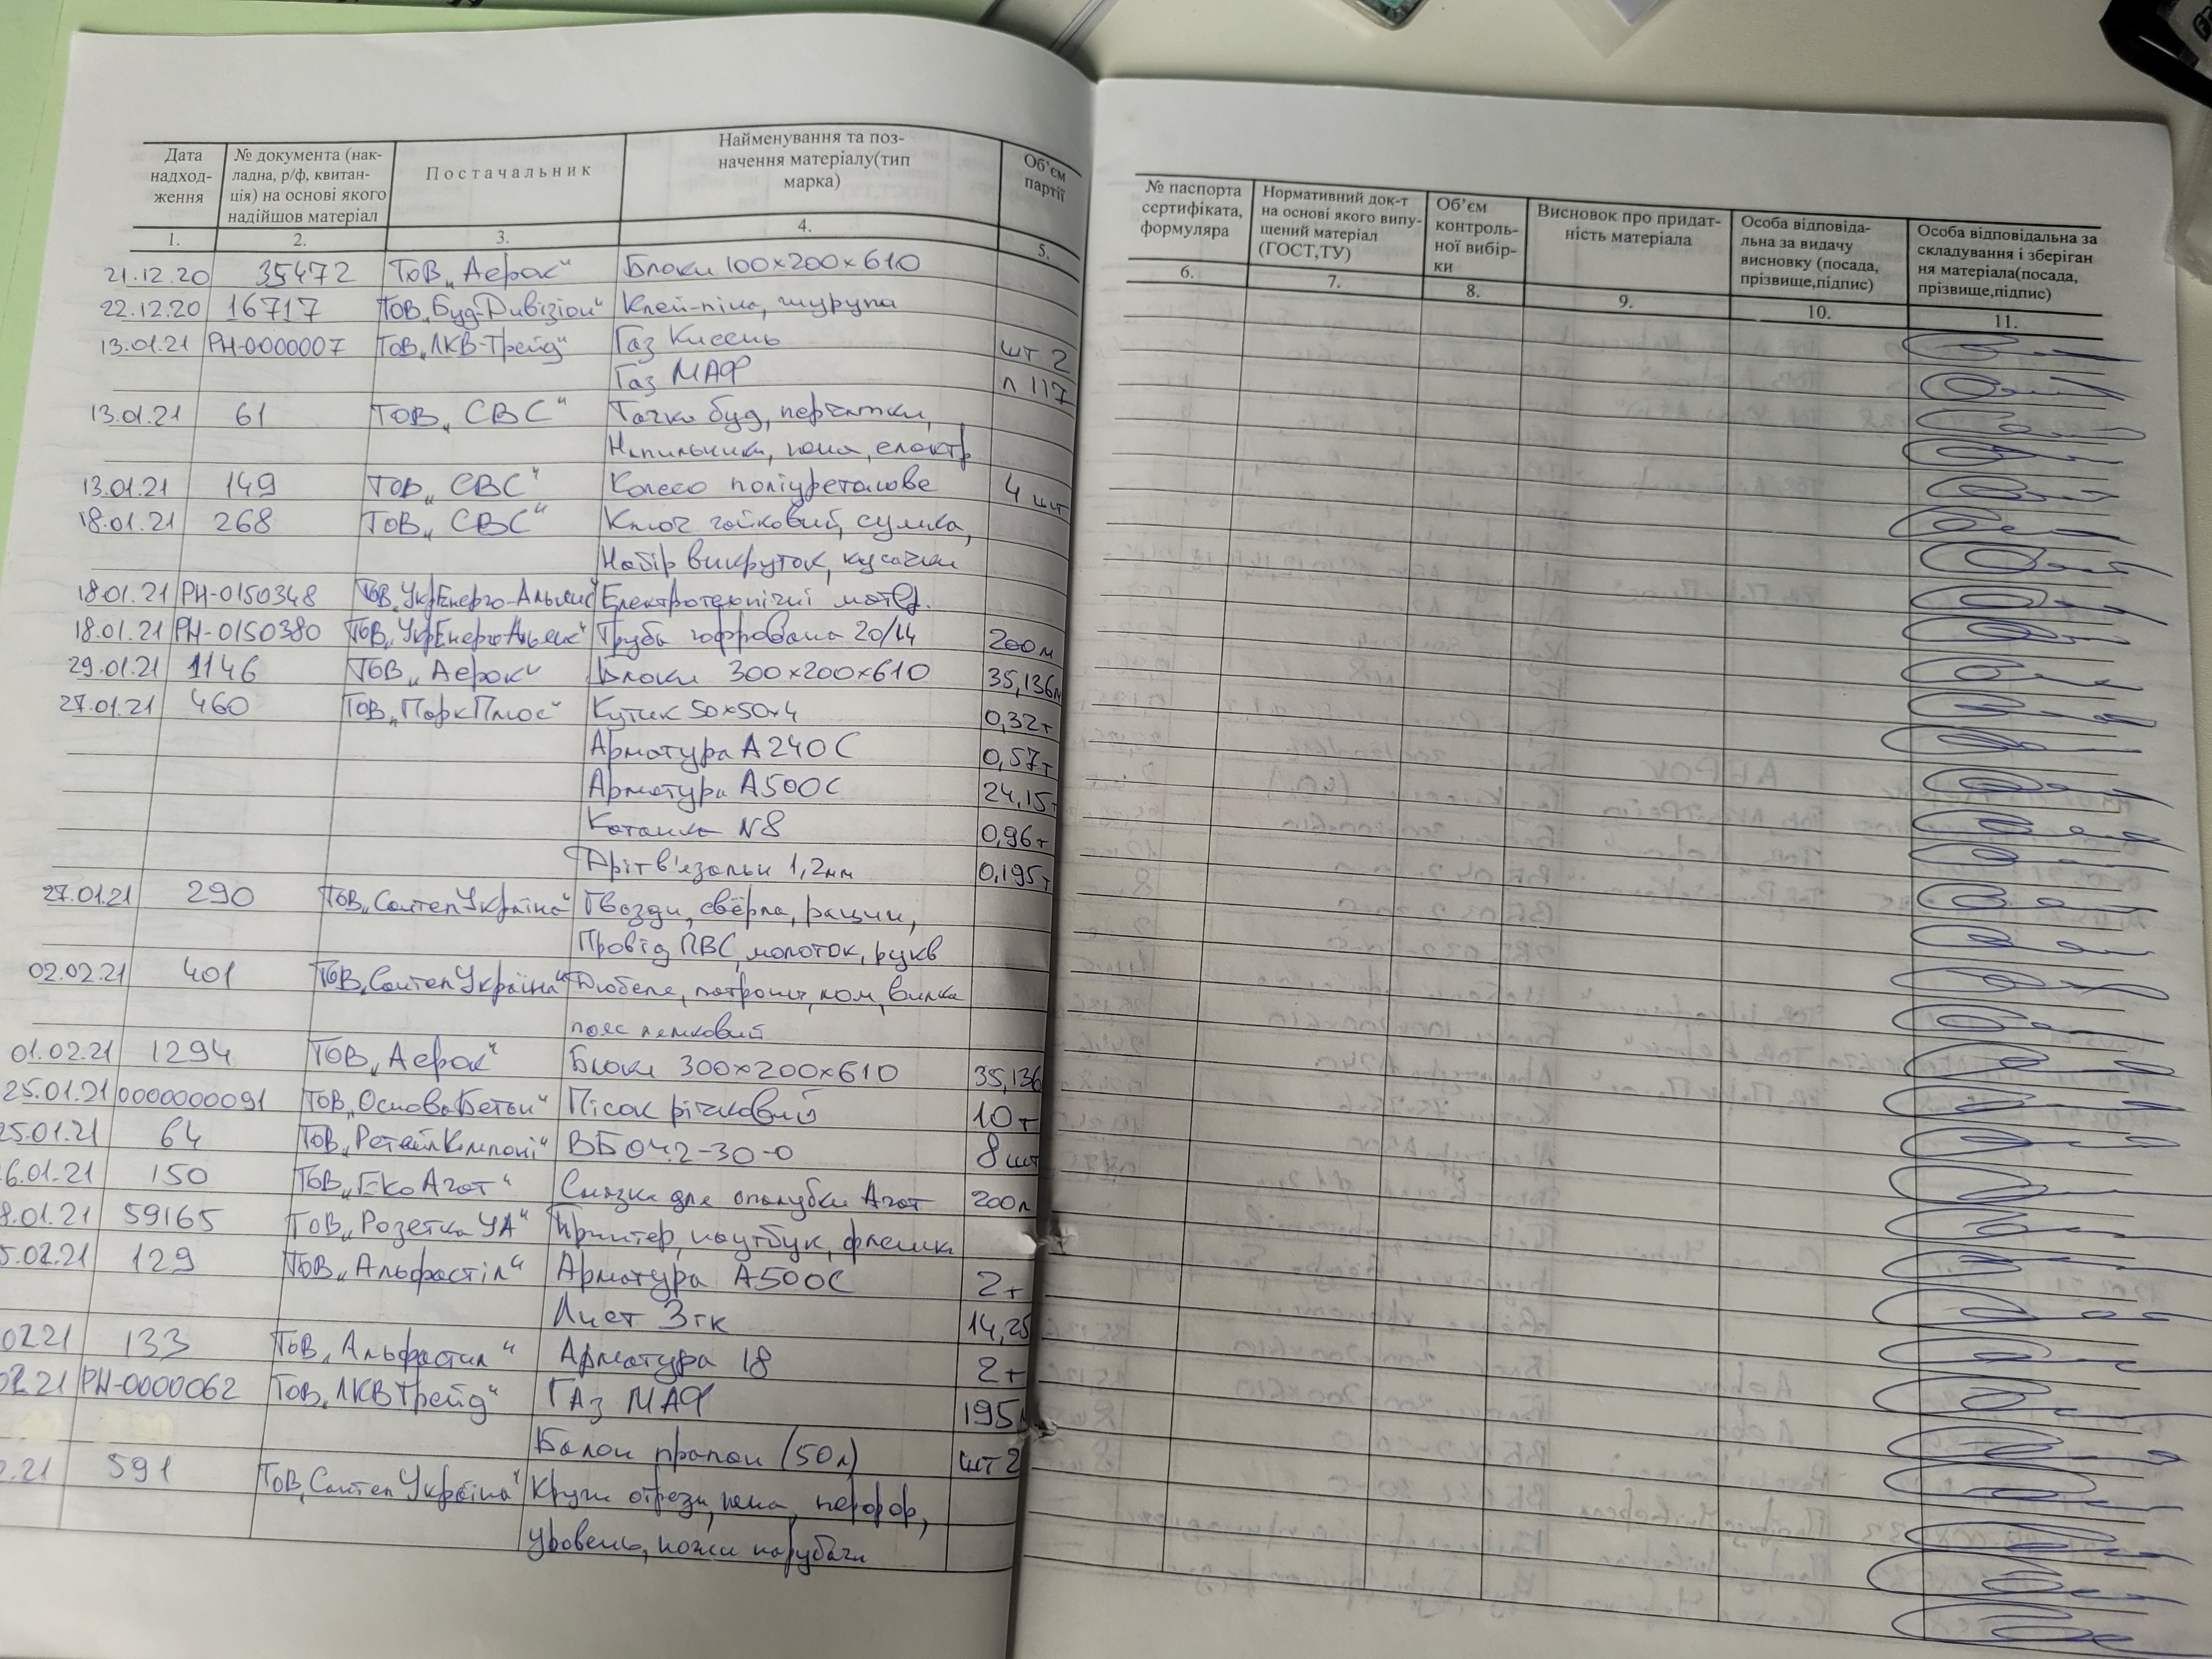 Дата надход-ження
№ документа (нак-ладна, р/ф, квитан-ція) на основі якого надійшов матеріал
Постачальник
Найменування та поз-начення матеріалу(тип марка)
Об'єм партії
1. 2. 3. 4. 5.
21.12.20 35472 ТОВ „Аерок" Блоки 100х200х610
22.12.20 16717 ТОВ „Буд-Дивізіон" Клей-піна, шурупа
13.01.21 РН-0000007 ТОВ „ЛКВ-Трейд" Газ Кисень шт 2
Газ МАФ л 117
13.01.21 61 ТОВ „СВС" Тачка буд, перчатки,
Напильники, пина, електр
13.01.21 149 ТОВ „СВС" Колесо поліуретанове 4 шт
18.01.21 268 ТОВ „СВС" Ключ гайковий, сумка,
Набір викруток, кусачки
18.01.21 РН-0150348 ТОВ „УкрЕнерго-Альянс" Електротехнічні матер.
18.01.21 РН-0150380 ТОВ „УкрЕнергоАльянс" Труба гофрована 20/14 200м
29.01.21 1146 ТОВ „Аерок" Блоки 300х200х610 35,136м
27.01.21 460 ТОВ „ПаркПлюс" Кутик 50х50х4 0,32т
Арматура А240С 0,57т
Арматура А500С 24,15т
Катанка N8 0,96т
Дріт в'язальн 1,2мм 0,195т
27.01.21 290 ТОВ „СантепУкраїна" Гвозди, свёрла, рации,
Провід ПВС, молоток, рукв
02.02.21 401 ТОВ „СантепУкраїна" Дюбеля, патрони, лом, вилка
пояс лямковий
01.02.21 1294 ТОВ „Аерок" Блоки 300х200х610 35,136
25.01.21 0000000091 ТОВ „ОсноваБетон" Пісок річковий 10т
25.01.21 64 ТОВ „РетайлКомпоні" ВБ04.2-30-0 8 шт
6.01.21 150 ТОВ „ЕкоАгат" Смазка для опалубки Агат 200л
8.01.21 59165 ТОВ „Розетка УА" Принтер, ноутбук, флешк
5.02.21 129 ТОВ „Альфастіл" Арматура А500С 2т
Лист 3гк 14,25
02.21 133 ТОВ „Альфастил" Арматура 18 2т
02.21 РН-0000062 ТОВ „ЛКВТрейд" ГАз МАФ 195л
Балон пропан (50л) шт 2
2.21 591 ТОВ „Сантеп Україна" Круги отрезн, пена, перфор,
уровень, ножи
№ паспорта сертифіката, формуляра
Нормативний док-т на основі якого випу-щений матеріал (ГОСТ,ТУ)
Об'єм контроль-ної вибір-ки
Висновок про придат-ність матеріала
Особа відповіда-льна за видачу висновку (посада, прізвище,підпис)
Особа відповідальна за складування і зберіган ня матеріала(посада, прізвище,підпис)
6. 7. 8. 9. 10. 11.